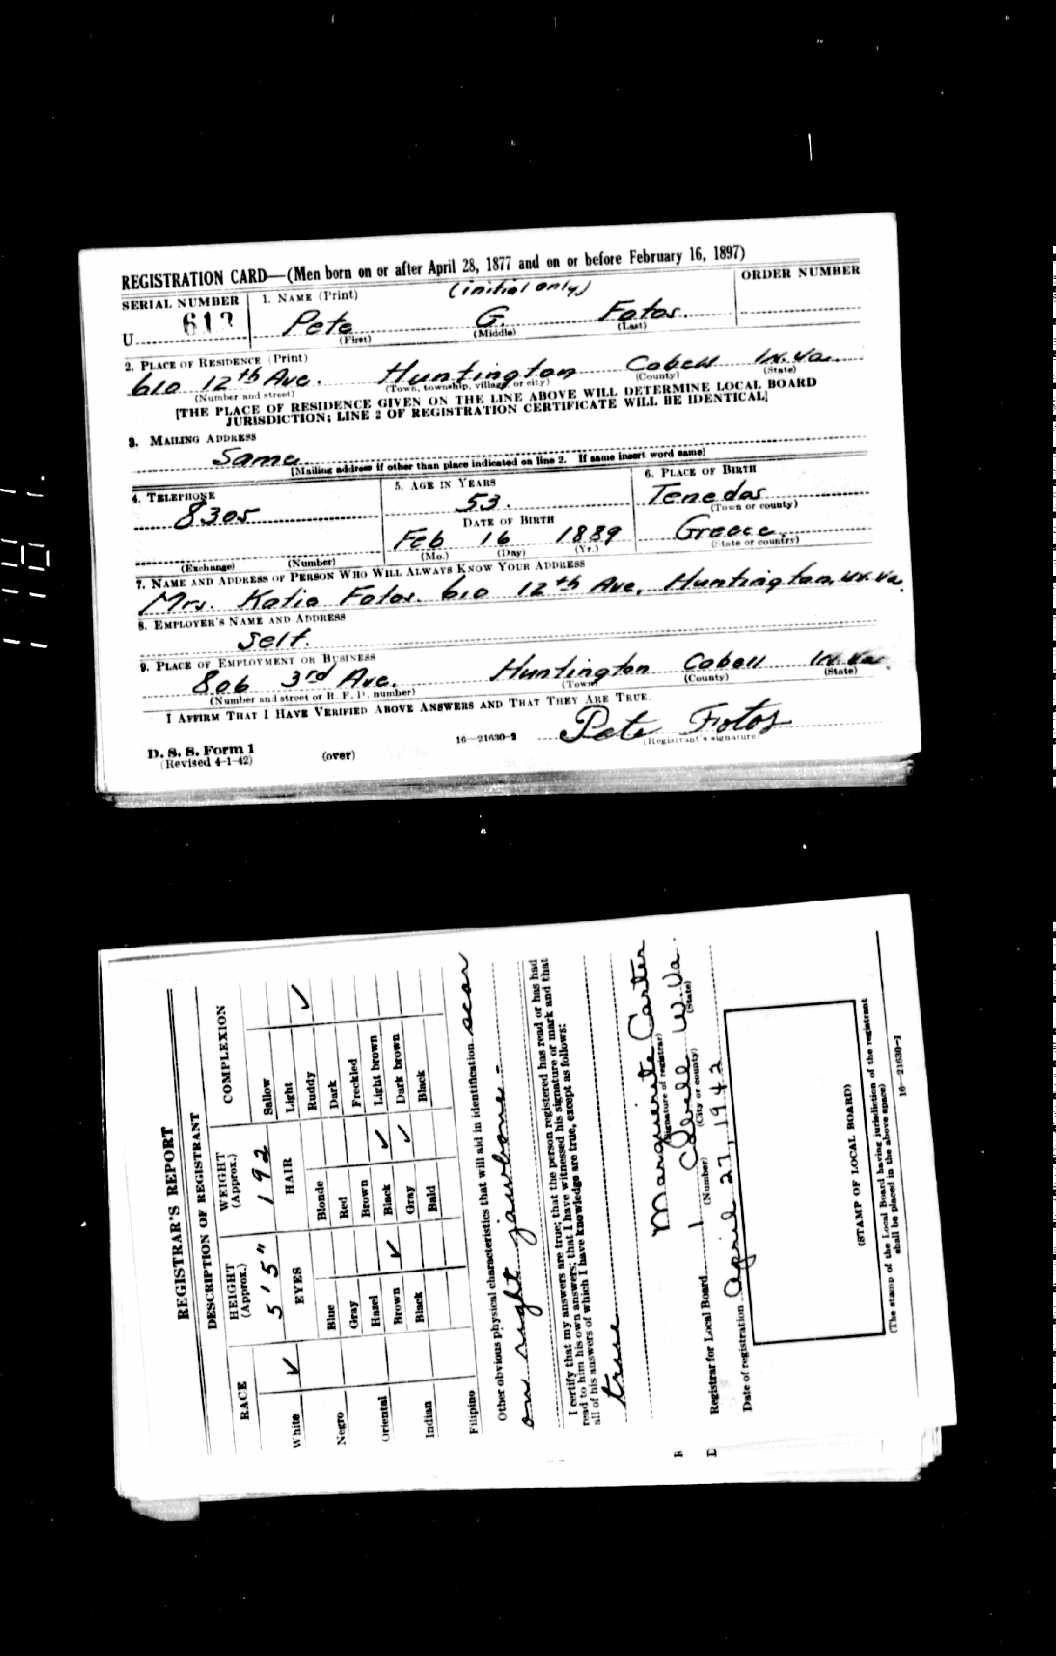 REGISTRATION CARD—(Men born on or after April 28, 1877 and on or before February 16, 1897)
SERIAL NUMBER 1. NAME (Print) (initial only) ORDER NUMBER
U 613 Pete G. Fotos
(First) (Middle) (Last)
2. PLACE OF RESIDENCE (Print)
610 12th Ave. Huntington Cabell W. Va.
(Number and street) (Town, township, village, or city) (County) (State)
[THE PLACE OF RESIDENCE GIVEN ON THE LINE ABOVE WILL DETERMINE LOCAL BOARD
JURISDICTION; LINE 2 OF REGISTRATION CERTIFICATE WILL BE IDENTICAL]
3. MAILING ADDRESS
Same
[Mailing address if other than place indicated on line 2. If same insert word same]
4. TELEPHONE 5. AGE IN YEARS 6. PLACE OF BIRTH
8305 53. Tenedos
(Town or county)
DATE OF BIRTH
Feb 16 1889 Greece
(Exchange) (Number) (Mo.) (Day) (Yr.) (State or country)
7. NAME AND ADDRESS OF PERSON WHO WILL ALWAYS KNOW YOUR ADDRESS
Mrs. Katie Fotos. 610 12th Ave, Huntington, W. Va.
8. EMPLOYER'S NAME AND ADDRESS
Self.
9. PLACE OF EMPLOYMENT OR BUSINESS
806 3rd Ave. Huntington Cabell W. Va.
(Number and street or R. F. D. number) (Town) (County) (State)
I AFFIRM THAT I HAVE VERIFIED ABOVE ANSWERS AND THAT THEY ARE TRUE.
Pete Fotos
D. S. S. Form 1 16—21630-2 (Registrant's signature)
(Revised 4-1-42) (over)
REGISTRAR'S REPORT
DESCRIPTION OF REGISTRANT
RACE HEIGHT (Approx.) WEIGHT (Approx.) COMPLEXION
5'5" 192 Sallow
White ✓ EYES HAIR Light
Blonde Ruddy ✓
Blue Red Dark
Negro Gray Brown Freckled
Hazel Black ✓ Light brown
Oriental Brown ✓ Gray ✓ Dark brown
Black Bald Black
Indian
Filipino
Other obvious physical characteristics that will aid in identification scar
on right jawbone -
I certify that my answers are true; that the person registered has read or has had
read to him his own answers; that I have witnessed his signature or mark and that
all of his answers of which I have knowledge are true, except as follows:
true
Marguerite Carter
(Signature of registrar)
Registrar for Local Board 1 Cabell W. Va.
(Number) (City or county) (State)
Date of registration April 27, 1942
(STAMP OF LOCAL BOARD)
(The stamp of the Local Board having jurisdiction of the registrant
shall be placed in the above space)
16—21630-1